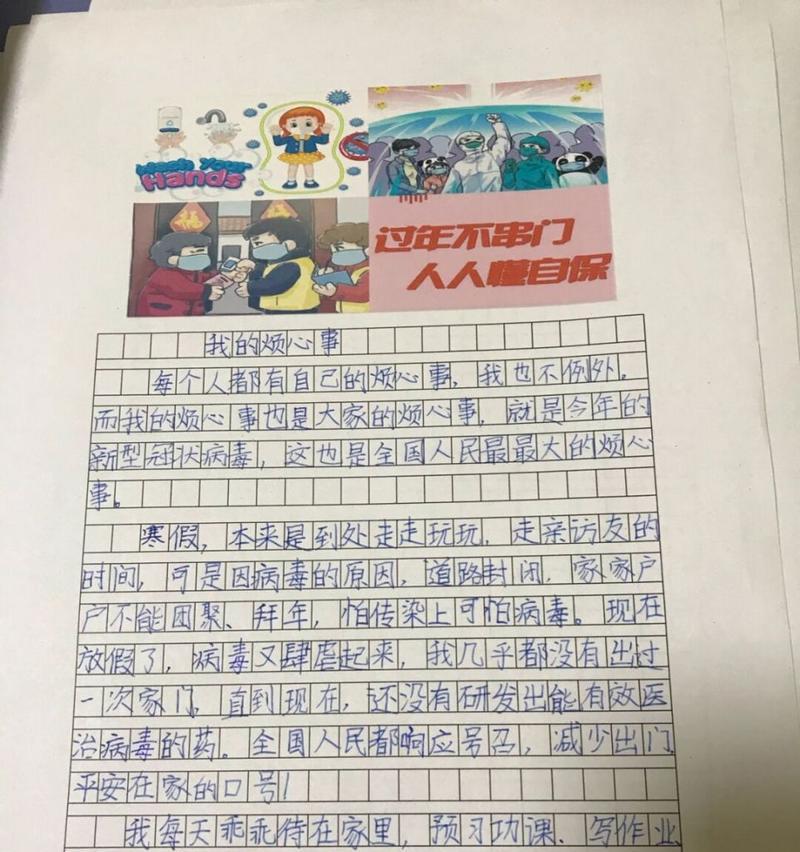 Wash Your
Hands
福
过年不串门
人人懂自保
我的烦心事
每个人都有自己的烦心事，我也不例外。
而我的烦心事也是大家的烦心事，就是今年的
新型冠状病毒，这也是全国人民最最大的烦心
事。
寒假，本来是到处走走玩玩，走亲访友的
时间，可是因病毒的原因，道路封闭，家家户
户不能团聚、拜年，怕传染上可怕病毒。现在
放假了，病毒又肆虐起来，我几乎都没有出过
一次家门，直到现在，还没有研发出能有效医
治病毒的药。全国人民都响应号召，减少出门
平安在家的口号！
我每天乖乖待在家里，预习功课、写作业、